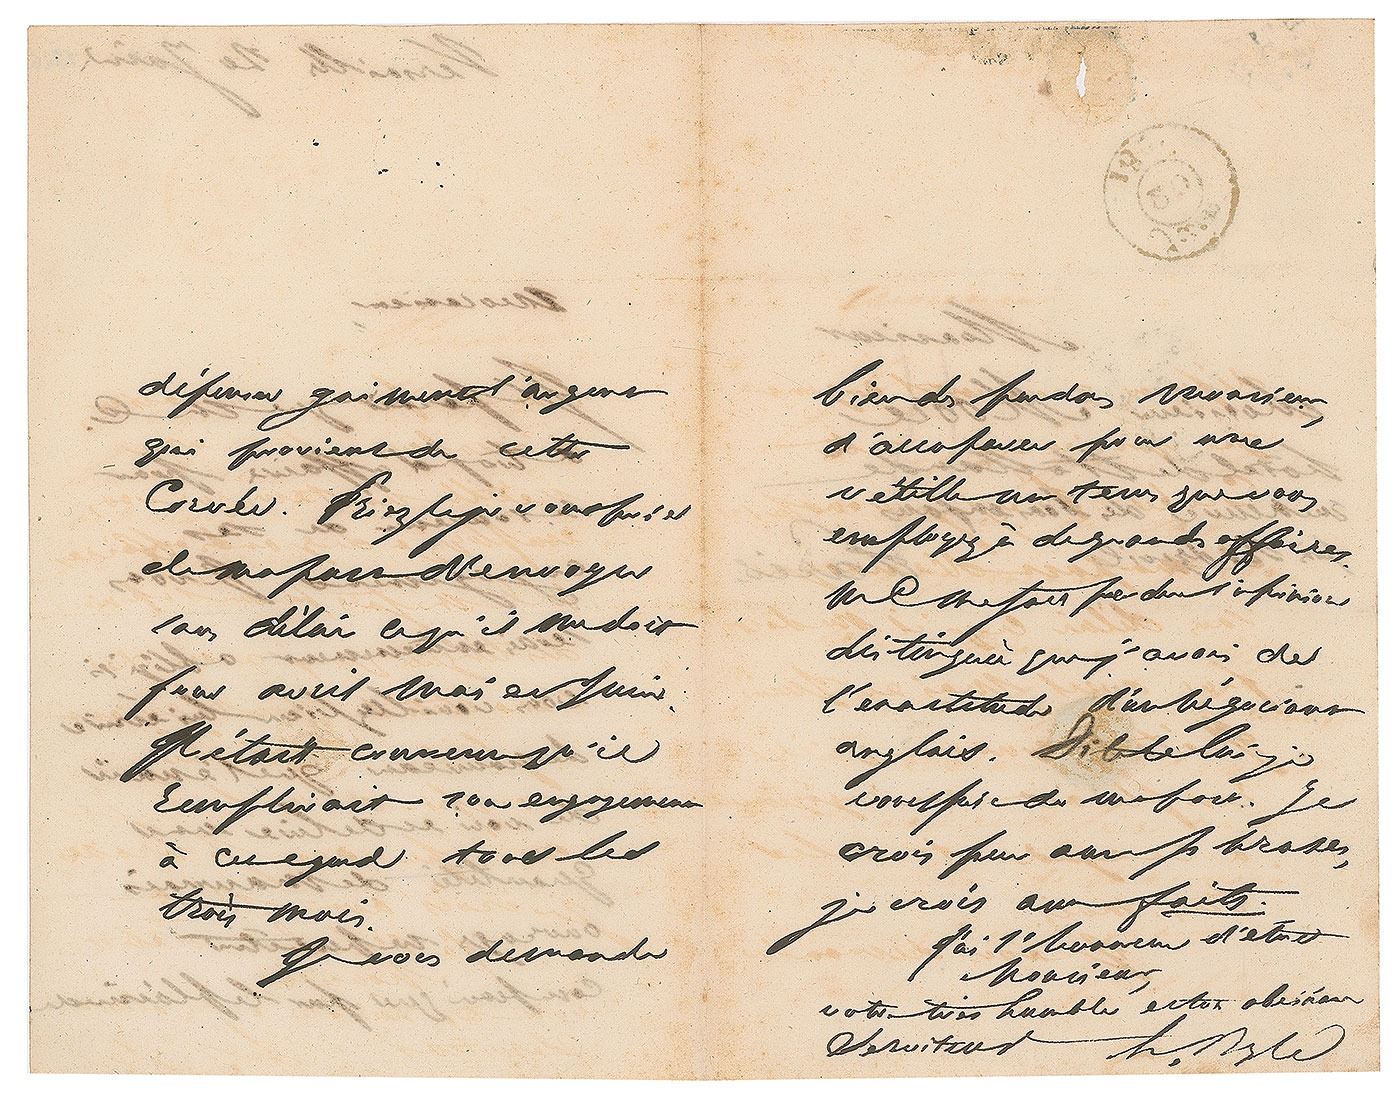 dépenser gaiment l'argent
qui provient de cette
Corvée. Priez le je vous prie
de ma part d'envoyer
sans délai ce qu'il me doit
pour avril mai et juin.
Il était convenu qu'il
remplirait son engagement
à cet egard tous les
trois mois.
Je vous demande
bien des pardons Monsieur,
d'accaparer pour une
vétille un tems que vous
employez à de grandes affaires.
M C me fait perdre l'opinion
distinguée que j'avais de
l'exactitude d'un négociant
anglais. Dites le lui je
vous prie de ma part. Je
crois peu aux phrases,
je crois aux faits.
J'ai l'honneur d'être
Monsieur,
votre très humble et très obéissant
Serviteur h. Beyle